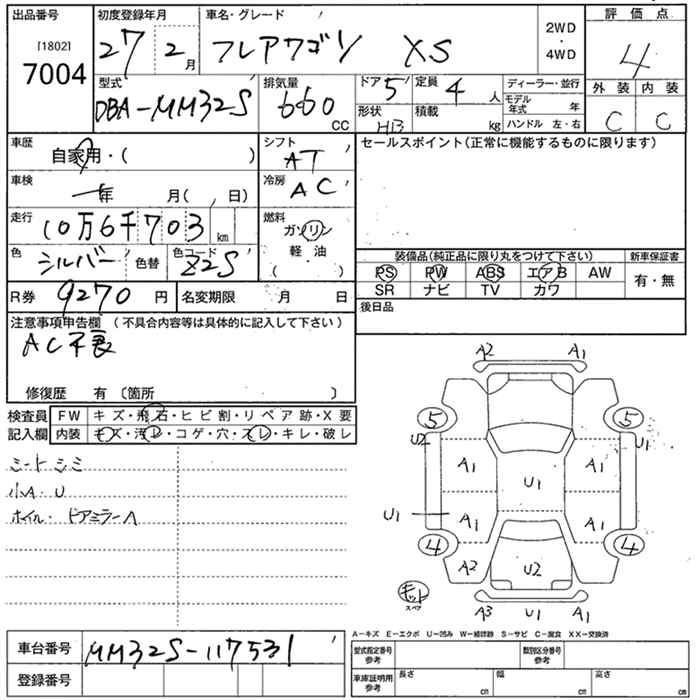 出品番号
[1802]
7004
初度登録年月
27 2月
車名・グレード
フレアワゴン XS
2WD
・
4WD
評価点
4
外装 内装
C C
型式
DBA-MM32S
排気量
660
CC
ドア 5
形状 HB
定員 4人
積載 kg
ディーラー・並行
モデル年式 年
ハンドル 左・右
車歴
自家用・( )
シフト
AT
セールスポイント(正常に機能するものに限ります)
車検
年 月( 、 日)
冷房
AC
走行
10万6千703km
燃料
ガソリン
軽・油
( )
色
シルバー
色替
色コード
Z2S
装備品(純正品に限り丸をつけて下さい)
新車保証書
PS PW ABS エアB AW
SR ナビ TV カワ
有・無
R券 9270円
名変期限 月 日
後日品
注意事項申告欄 (不具合内容等は具体的に記入して下さい)
AC不良
修復歴 有 〔箇所 〕
検査員
記入欄
FW キズ・飛石・ヒビ割・リペア跡・X要
内装 キズ・汚レ・コゲ・穴・スレ・キレ・破レ
シートシミ
小A・U
ホイル・ドアミラーA
A2 A1
5 5
U2
A1 A1
U1
U1 A1 A1
4 4
A2 U2
キット
スペア
A3 U1 A1
A-キズ E-エクボ U-凹み W-補修跡 S-サビ C-腐食 XX-交換済
車台番号
MM32S-117531
登録番号
型式指定番号
参考
類別区分番号
参考
車庫証明用
参考
長さ cm
幅 cm
高さ cm